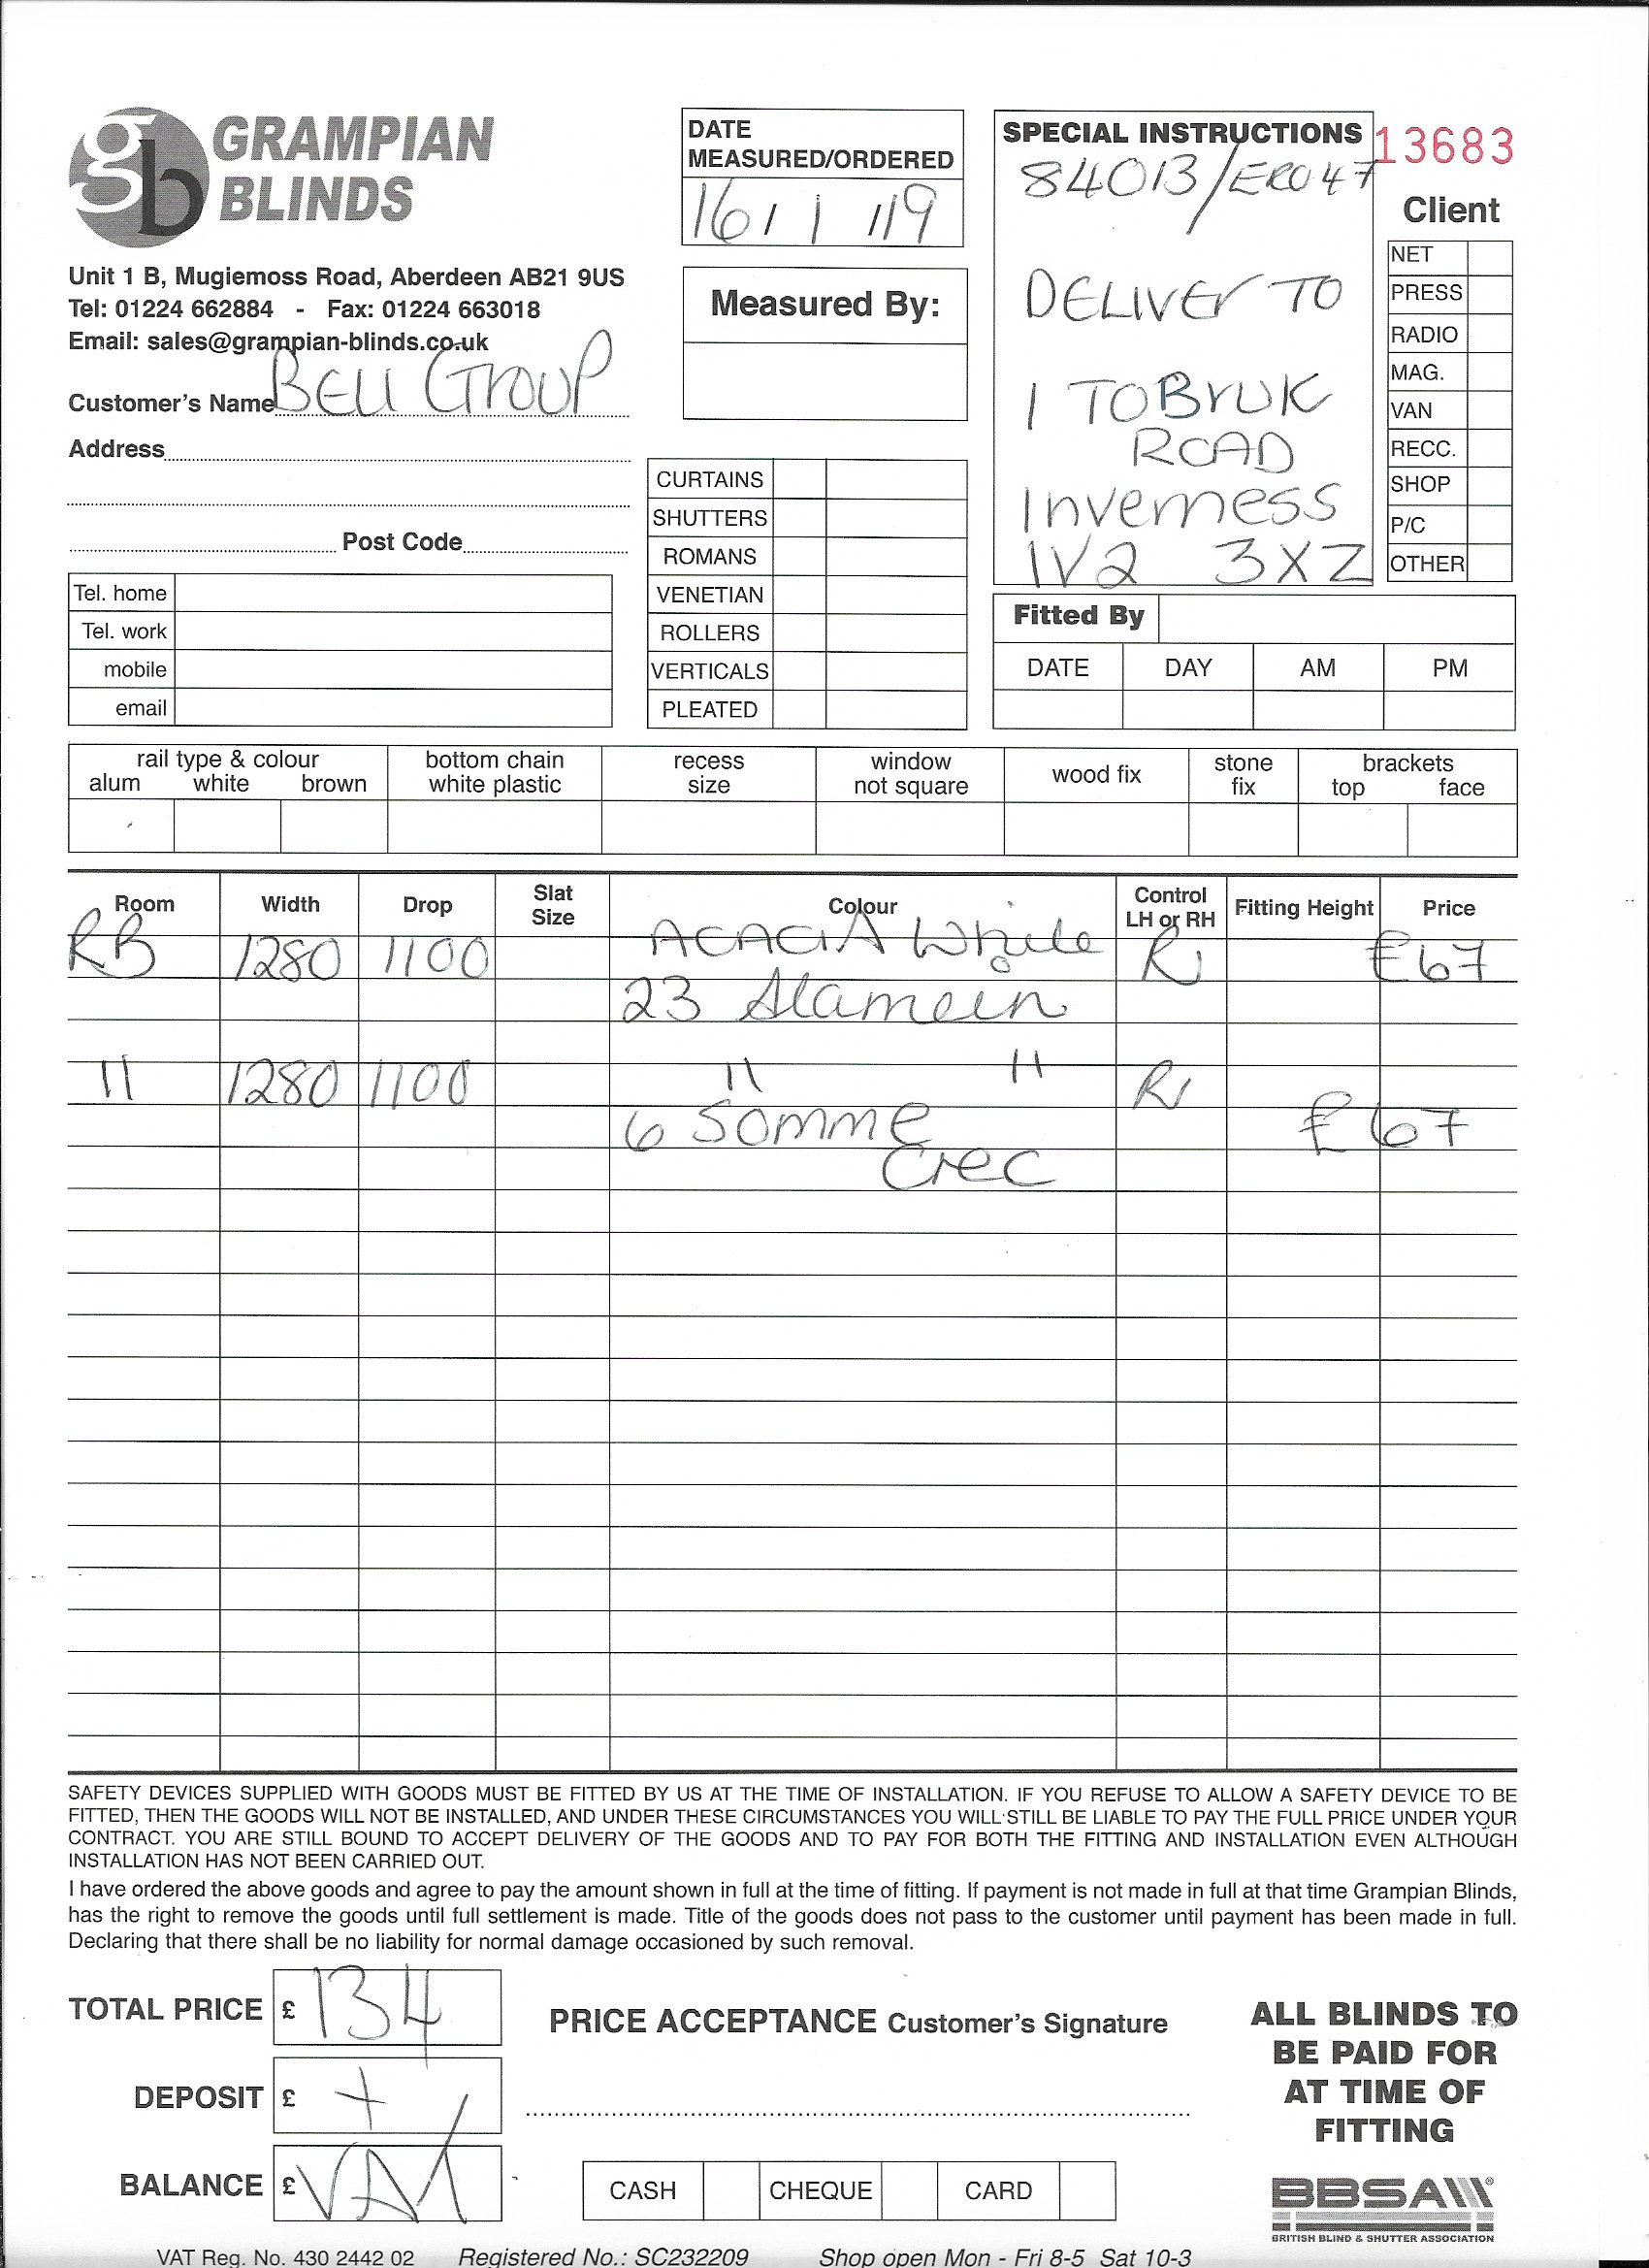 gb GRAMPIAN
BLINDS
Unit 1 B, Mugiemoss Road, Aberdeen AB21 9US
Tel: 01224 662884 - Fax: 01224 663018
Email: sales@grampian-blinds.co.uk
Customer's Name BELL GROUP
Address
Post Code
Tel. home
Tel. work
mobile
email
DATE
MEASURED/ORDERED
16/1/19
Measured By:
CURTAINS
SHUTTERS
ROMANS
VENETIAN
ROLLERS
VERTICALS
PLEATED
SPECIAL INSTRUCTIONS
84013/ER047
DELIVER TO
1 TOBRUK
ROAD
Inverness
IV2 3XZ
13683
Client
NET
PRESS
RADIO
MAG.
VAN
RECC.
SHOP
P/C
OTHER
Fitted By
DATE DAY AM PM
rail type & colour bottom chain recess window wood fix stone brackets
alum white brown white plastic size not square fix top face
Room Width Drop Slat Size Colour Control LH or RH Fitting Height Price
RB 1280 1100 ACACIA White R £67
23 Alamein
" 1280 1100 " " R
6 Somme £67
Crec
SAFETY DEVICES SUPPLIED WITH GOODS MUST BE FITTED BY US AT THE TIME OF INSTALLATION. IF YOU REFUSE TO ALLOW A SAFETY DEVICE TO BE
FITTED, THEN THE GOODS WILL NOT BE INSTALLED, AND UNDER THESE CIRCUMSTANCES YOU WILL STILL BE LIABLE TO PAY THE FULL PRICE UNDER YOUR
CONTRACT. YOU ARE STILL BOUND TO ACCEPT DELIVERY OF THE GOODS AND TO PAY FOR BOTH THE FITTING AND INSTALLATION EVEN ALTHOUGH
INSTALLATION HAS NOT BEEN CARRIED OUT.
I have ordered the above goods and agree to pay the amount shown in full at the time of fitting. If payment is not made in full at that time Grampian Blinds,
has the right to remove the goods until full settlement is made. Title of the goods does not pass to the customer until payment has been made in full.
Declaring that there shall be no liability for normal damage occasioned by such removal.
TOTAL PRICE £ 134
DEPOSIT £ +
BALANCE £ VAT
PRICE ACCEPTANCE Customer's Signature
CASH CHEQUE CARD
ALL BLINDS TO
BE PAID FOR
AT TIME OF
FITTING
BBSA
BRITISH BLIND & SHUTTER ASSOCIATION
VAT Reg. No. 430 2442 02 Registered No.: SC232209 Shop open Mon - Fri 8-5 Sat 10-3